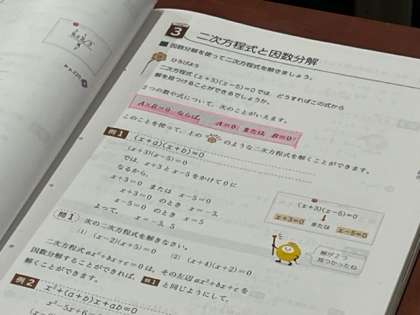 3 二次方程式と因数分解
因数分解を使って二次方程式を解きましょう。
ひろげよう
二次方程式 (x+3)(x−5)=0 では、どうすればこの式から
解を見つけることができるでしょうか。
2つの数や式について、次のことがいえます。
A×B=0 ならば、 A=0 または B=0
このことを使って、上の のような二次方程式を解くことができます。
例1 (x+a)(x+b)=0
(x+3)(x−5)=0
では、x+3 と x−5 をかけて0に
なるから、
x+3=0 または x−5=0
x+3=0 のとき x=−3
x−5=0 のとき x=5
よって、 x=−3, 5
(x+3)(x−5)=0
x+3=0 または x−5=0
解が2つ
見つかったね
問1 次の二次方程式を解きなさい。
(1) (x−2)(x+5)=0 (2) (x+4)(x+2)=0
二次方程式 ax²+bx+c=0 は、その左辺 ax²+bx+c を
因数分解することができれば、例1 と同じようにして、
解くことができます。
例2 x²+(a+b)x+ab=0